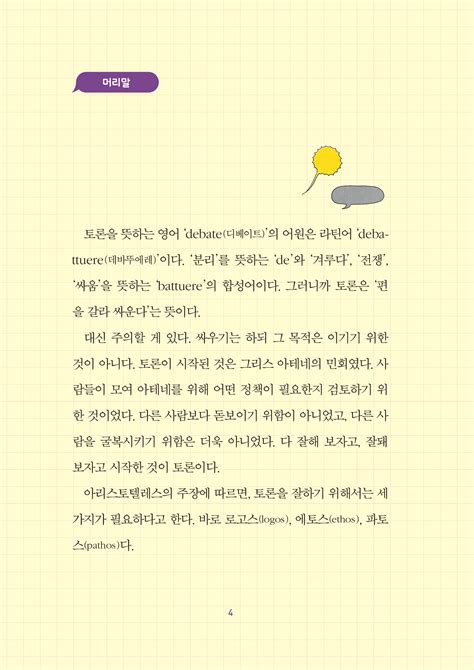 머리말
토론을 뜻하는 영어 ‘debate(디베이트)’의 어원은 라틴어 ‘deba-
ttuere(데바뚜에레)’이다. ‘분리’를 뜻하는 ‘de’와 ‘겨루다’, ‘전쟁’,
‘싸움’을 뜻하는 ‘battuere’의 합성어이다. 그러니까 토론은 ‘편
을 갈라 싸운다’는 뜻이다.
대신 주의할 게 있다. 싸우기는 하되 그 목적은 이기기 위한
것이 아니다. 토론이 시작된 것은 그리스 아테네의 민회였다. 사
람들이 모여 아테네를 위해 어떤 정책이 필요한지 검토하기 위
한 것이었다. 다른 사람보다 돋보이기 위함이 아니었고, 다른 사
람을 굴복시키기 위함은 더욱 아니었다. 다 잘해 보자고, 잘돼
보자고 시작한 것이 토론이다.
아리스토텔레스의 주장에 따르면, 토론을 잘하기 위해서는 세
가지가 필요하다고 한다. 바로 로고스(logos), 에토스(ethos), 파토
스(pathos)다.
4